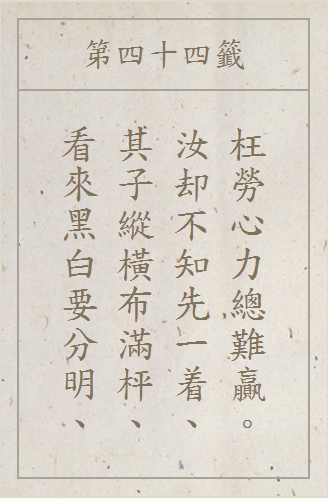 第四十四籤
看來黑白要分明、
其子縱橫布滿枰、
汝却不知先一着、
枉勞心力總難贏。